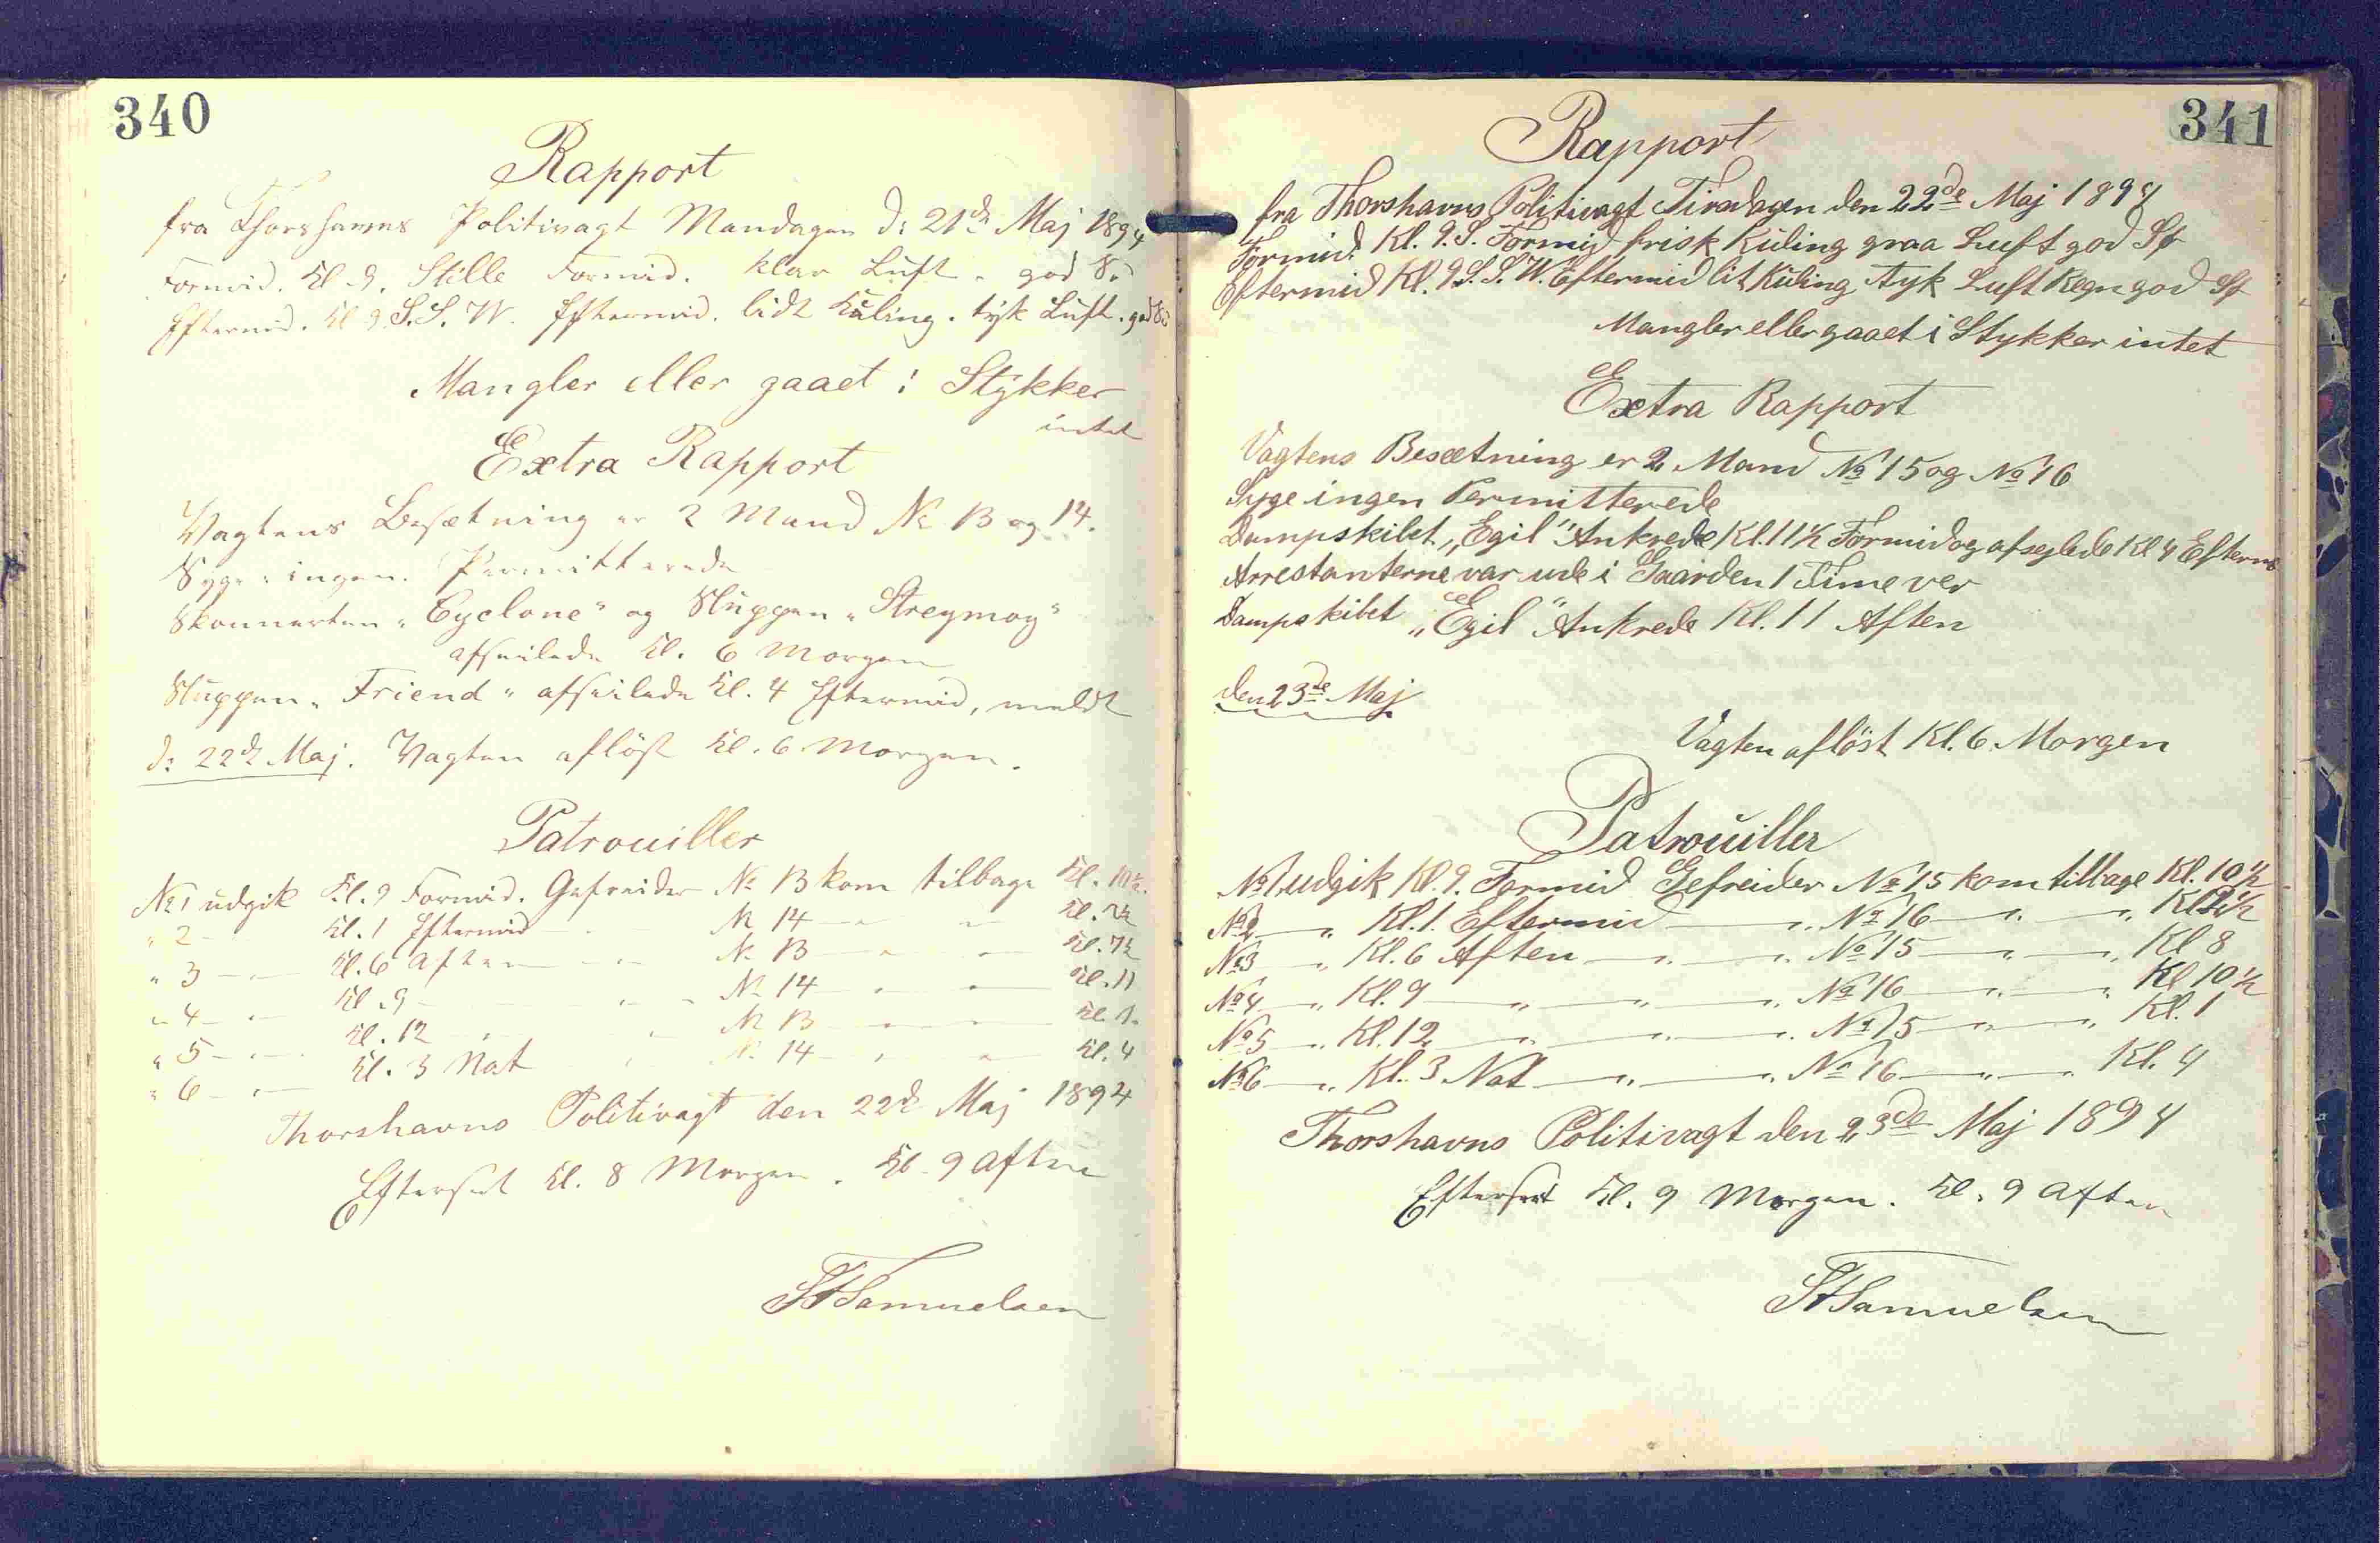 340
Rapport
fra Thorshavns Politivagt Mandagen d: 21de Maj 1894
Formid. Kl. 9. Stille Formid. klar Luft. god Sö
Eftermid. Kl 9 S.S.W. Eftermid. lidt Kuling. tyk Luft. god Sö
Mangler eller gaaet i Stykker
intet
Extra Rapport
Vagtens Besætning er 2 Mand No 13 og 14.
Syge ingen. Permitterede
Skonnerten "Cyclone" og Sluppen "Streymoy"
afseilede Kl. 6 Morgen
Sluppen "Friend" afseilede Kl. 4 Eftermid, meldt
d: 22de Maj. Vagten aflöst Kl. 6 Morgen.
Patrouiller
No 1 udgik Kl. 9 Formid. Gefreider No 13 kom tilbage Kl. 10½.
" 2 - Kl. 1 Eftermid - - No 14 - - Kl. 2½
" 3 - - Kl. 6 Aften - - No 13 - - Kl. 7½
" 4 - - Kl. 9 - - - No 14 - - Kl. 11
" 5 - - Kl. 12 - - No 13 - - Kl. 1.
" 6 - - Kl. 3 Nat " No 14 - - Kl. 4
Thorshavns Politivagt den 22de Maj 1894
Efterset Kl. 8 Morgen. Kl. 9 Aften
Samuelsen
341
Rapport
fra Thorshavns Politivagt Tirsdagen den 22de Maj 1894
Formid. Kl. 9. S. Formid frisk Kuling graa Luft god Sö
Eftermid Kl. 9 S.S.W. Eftermid lit Kuling tyk Luft Regn god Sö
Mangler eller gaaet i Stykker intet
Extra Rapport
Vagtens Besætning er 2 Mand No 15 og No 16
Syge ingen Permitterede
Dampskibet "Egil" Ankrede Kl. 11½ Formid og afseglede Kl 4 Efterm
Arrestanterne var ude i Gaarden 1 Time ver
Dampskibet "Egil" Ankrede Kl. 11 Aften
den 23de Maj
Vagten aflöst Kl. 6 Morgen
Patrouiller
No 1 udgik Kl. 9. Formid Gefreider No 15 kom tilbage Kl. 10½
No 2 " Kl. 1. Eftermid " No 16 " " Kl 2½
No 3 " Kl. 6 Aften " " No 15 " " Kl 8
No 4 " Kl. 9 " " " No 16 " " Kl 10½
No 5 " Kl. 12 " " " No 15 " " Kl. 1
No 6 " Kl. 3 Nat " " No 16 " " Kl. 4
Thorshavns Politivagt den 23de Maj 1894
Efterset Kl. 9 Morgen. Kl. 9 Aften
Samuelsen